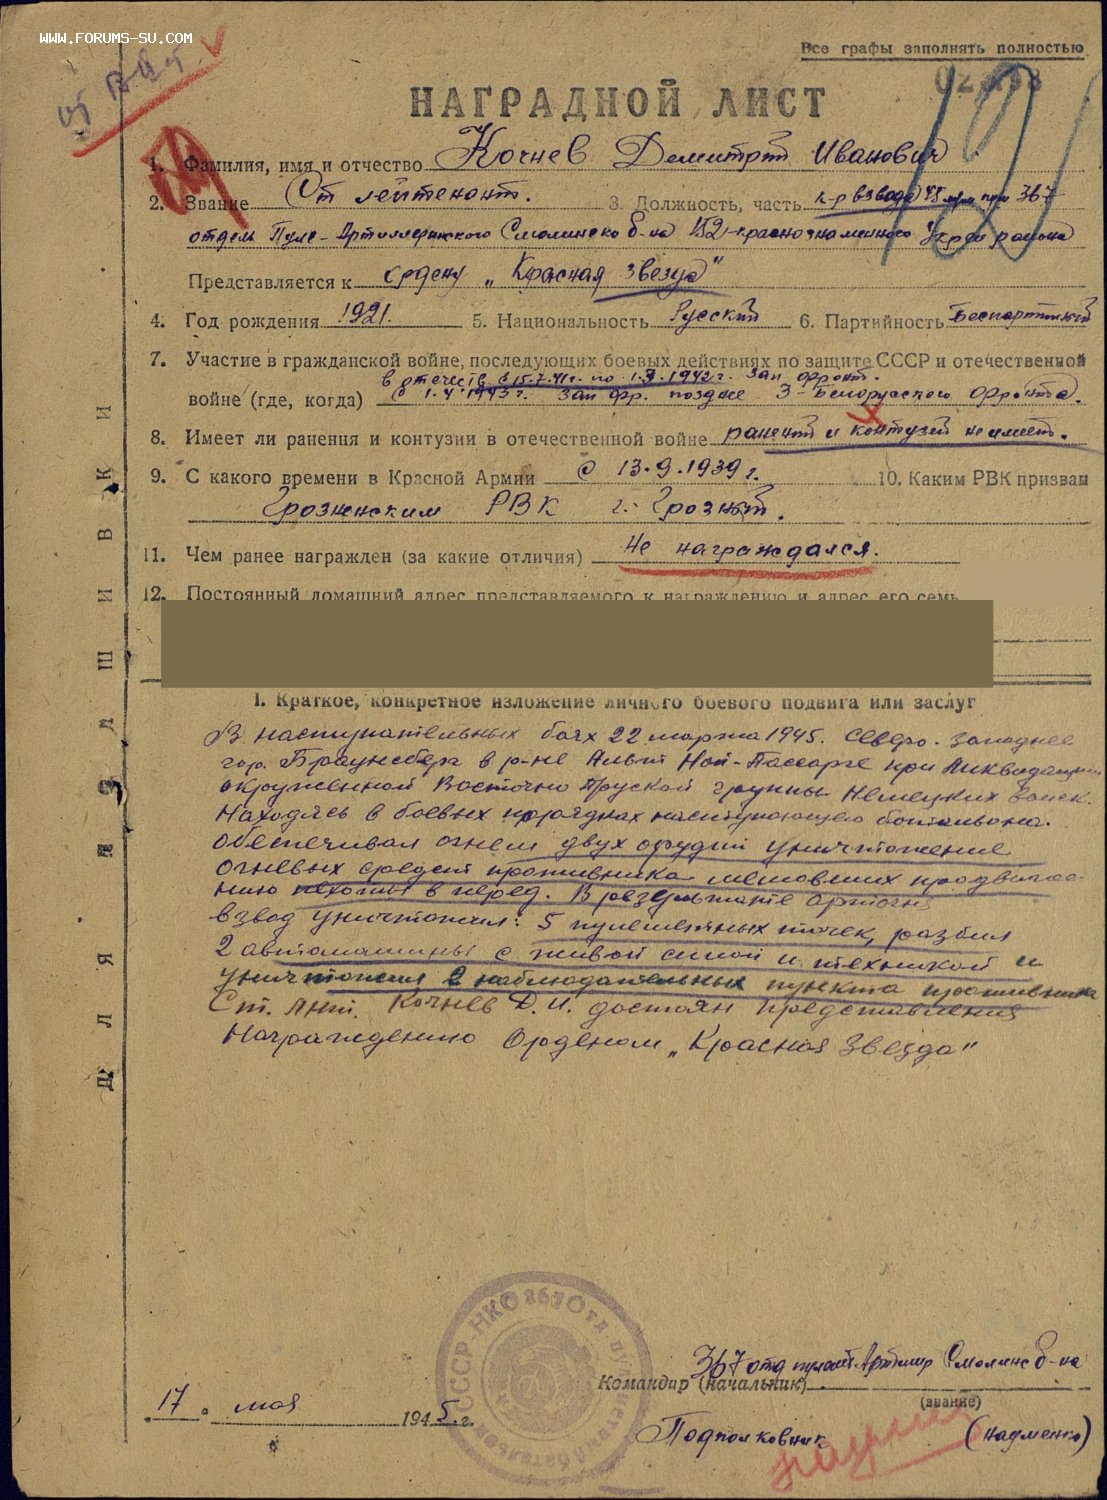 WWW.FORUMS-SU.COM
Все графы заполнять полностью
НАГРАДНОЙ ЛИСТ
1. Фамилия, имя и отчество Кочнев Демитрий Иванович
2. Звание Ст лейтенант. 3. Должность, часть к-р взвода 45 при 367
отдель Пуле-Артиллерийского Смолинско б-на 152-краснознаменного Укреп района
Представляется к ордену „Красная звезда"
4. Год рождения 1921. 5. Национальность Русский 6. Партийность Беспартийный
7. Участие в гражданской войне, последующих боевых действиях по защите СССР и отечественной
в отечеств с 15.7.41г. по 1.9.1942г. Зап фронт.
войне (где, когда) с 1.4.1943г. Зап фр. позднее 3-Белорусского фронта.
8. Имеет ли ранения и контузии в отечественной войне ранений и контузий не имеет.
9. С какого времени в Красной Армии с 13.9.1939г. 10. Каким РВК призван
Грозненским РВК г. Грозный.
11. Чем ранее награжден (за какие отличия) Не награждался.
12. Постоянный домашний адрес представляемого к награждению и адрес его семь
I. Краткое, конкретное изложение личного боевого подвига или заслуг
В наступательных боях 22 марта 1945. Северо-западнее
гор. Браунсберг в р-не Альт Ной-Пассарге при Ликвидации
окруженной Восточно Пруской группы Немецких войск.
Находясь в боевых порядках наступающего батальона.
обеспечивал огнем двух орудий уничтожение
огневых средств противника мешовших продвиже-
нию пехоты в перед. В результате артогня
взвод уничтожил: 5 пулеметных точек, разбил
2 автомашины с живой силой и техникой и
уничтожил 2 наблюдательных пункта противника
Ст. Лнт. Кочнев Д.И. достоин представления
Награждению Орденом „Красная Звезда"
ДЛЯ ПОДШИВКИ
367 отд пульт. Артилер Смолинс б-на
Командир (начальник)
(звание)
17 " мая 1945.г.
Подполковник (Науменко)
СССР-НКО 367 Отд пулеметный батальон